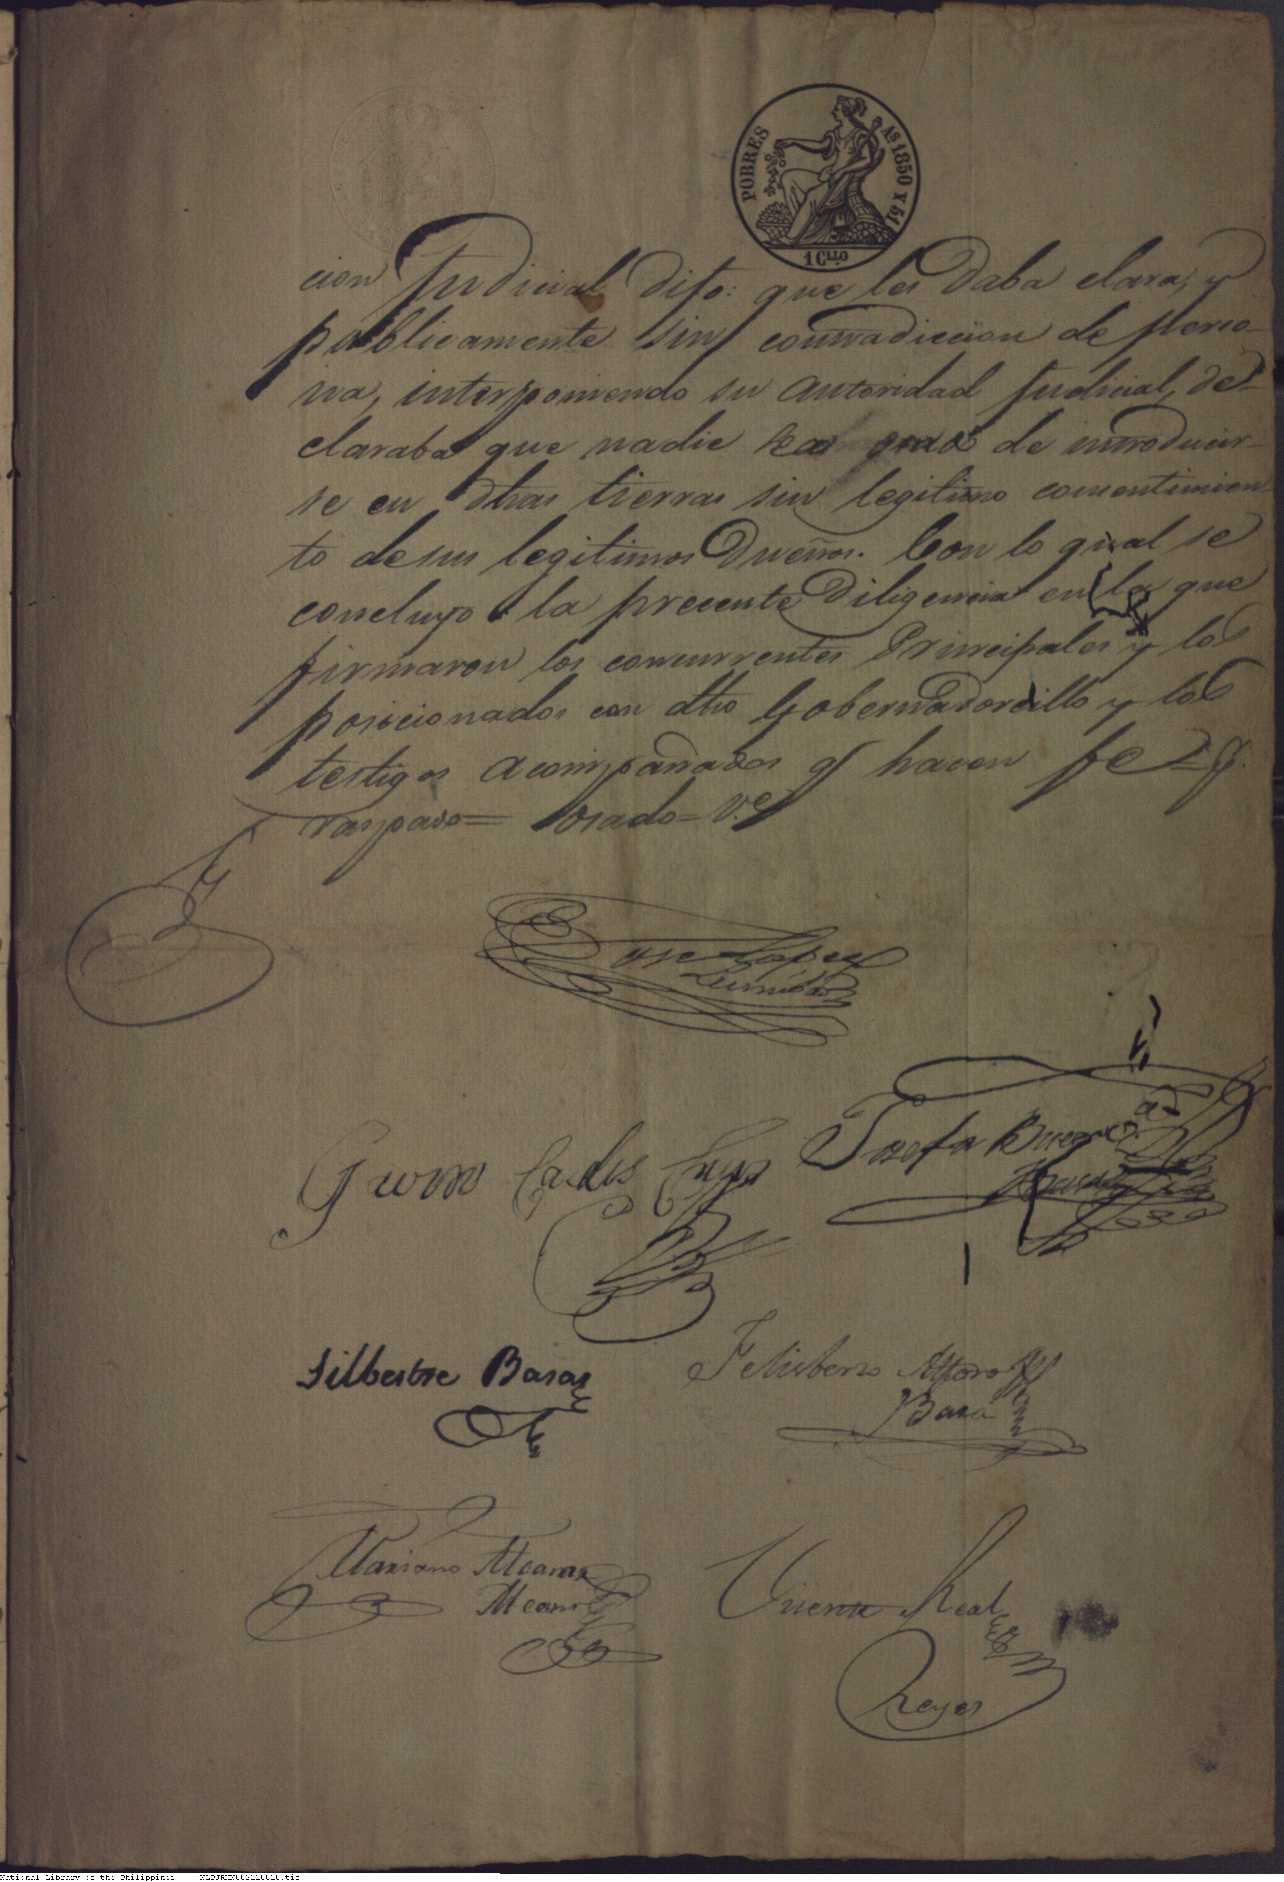 POBRES
AS 1850 Y 51
1 Cllo
cion Judicial dijo: que les daba clara, y
publicamente sin contradiccion de perso-
na, interponiendo su autoridad Judicial, de-
claraba que nadie sea osado de introducir-
se en dhas tierras sin legitimo consentimien-
to de sus legitimos Dueños. Con lo qual se
concluyo la precente Diligencia en la que
firmaron los concurrentes Principales y los
posicionados con dho Gobernadorcillo y los
testigos acompañados q hacen fe =
raspado = osado = V.e
Jose Lopez
Carlos
Josefa
Silbestre Basas
Feliberto
Basa
Mariano
Vicente Real
Reyes
National Library of the Philippines